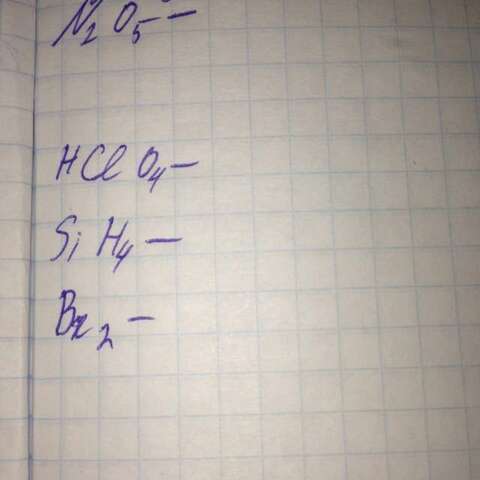 N₂O₅ –
HClO₄ –
SiH₄ –
Br₂ –